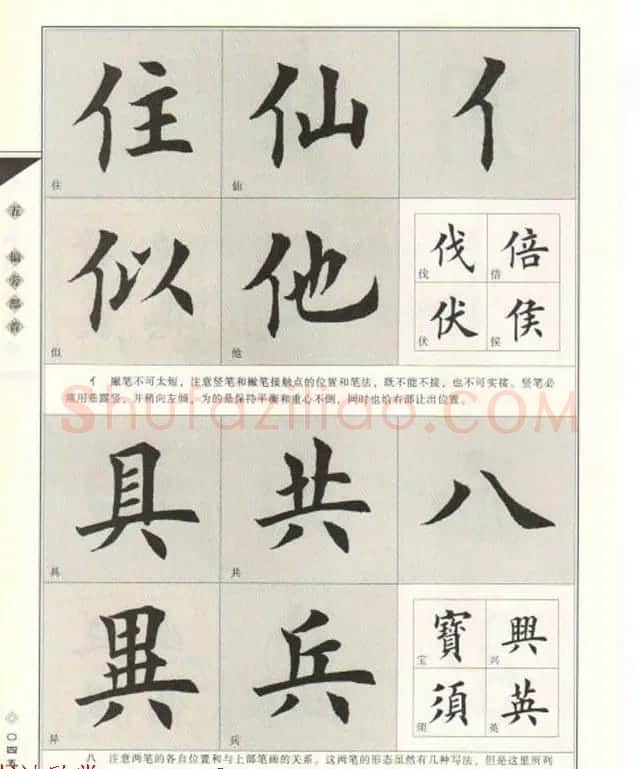 住 仙 亻
住 仙
似 他
似 他
伐 倍
伐 倍
伏 侯
伏 侯
亻 撇笔不可太短，注意竖笔和撇笔接触点的位置和笔法，既不能不接，也不可实接。竖笔必
须用垂露竖，并稍向左倾，为的是保持平衡和重心不倒，同时也给右部让出位置。
shufaziliao.COM
具 共 八
具 共
異 兵
异 兵
寶 興
宝 兴
須 英
须 英
八 注意两笔的各自位置和与上部笔画的关系。这两笔的形态虽然有几种写法，但是这里所列
五 偏旁部首